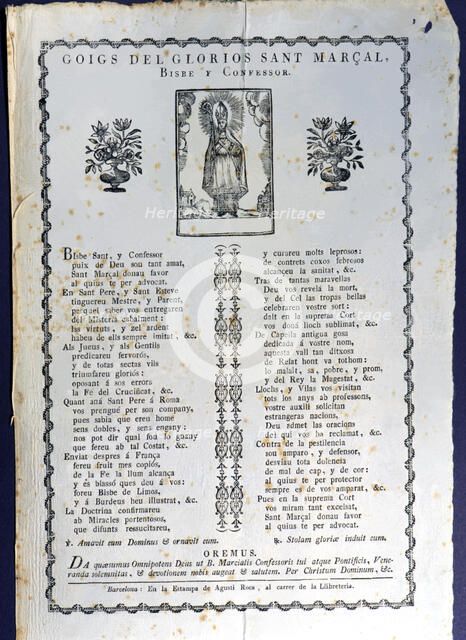 GOIGS DEL GLORIOS SANT MARÇAL,
BISBE Y CONFESSOR.
BIsbe Sant, y Confessor
puix de Deu son tant amat,
Sant Marçal donau favor
al quius te per advocat.
En Sant Pere, y Sant Esteve
tinguereu Mestre, y Parent,
perquel saber vos entregaren
del Misteria cabalment:
las virtuts, y zel ardent
habeu de ells sempre imitat, &c.
Als Jueus, y als Gentils
predicareu fervorós,
y de totas sectas vils
triumfareu gloriós:
oposant á sos errors
la Fe del Crucificat, &c.
Quant aná Sant Pere á Roma
vos prengué per son company,
pues sabia que ereu home
sens dobles, y sens engany:
nos pot dir qual fou lo gañy
que fereu ab tal Costat, &c.
Enviat despres á França
fereu fruit mes copiós,
de la Fe la llum alcança
y és blassó ques deu á vos:
foreu Bisbe de Limos,
y á Burdeus heu illustrat, &c.
La Doctrina confirmareu
ab Miracles portentosos,
que difunts ressucitareu,
y curareu molts leprosos:
de contrets coxos febrosos
alcançeu la sanitat, &c.
Tras de tantas maravellas
Deu vos revela la mort,
y del Cel las tropas bellas
celebraren vostre sort:
dalt en la suprema Cort
vos doná lloch sublimat, &c.
De Capella antigua gosa
dedicada á vostre nom,
aquesta vall tan ditxosa
de Relat hont va tothom:
lo malalt, sa, pobre, y prom,
y del Rey la Magestat, &c.
Llochs, y Vilas vos visitan
tots los anys ab professons,
vostre auxili solicitan
estrangeras nacions,
Deu admet las oracions
del qui vos ha reclamat, &c.
Contra de la pestilencia
sou amparo, y defensor,
desviau tota dolencia
de mal de cap, y de cor:
al quius te per protector
sempre es de vos amparat, &c.
Pues en la suprema Cort
vos miram tant excelsat,
Sant Marçal donau favor
al quius te per advocat.
℣. Amavit eum Dominus & ornavit eum.
℟. Stolam gloriæ induit eum.
OREMUS.
DA quæsumus Omnipotens Deus ut B. Marcialis Confessoris tui atque Pontificis, Vene-
randa solemnitas, & devotionem nobis augeat & salutem. Per Christum Dominum, &c.
Barcelona: En la Estampa de Agusti Roca, al carrer de la Llibreteria.
Heritage
Heritage